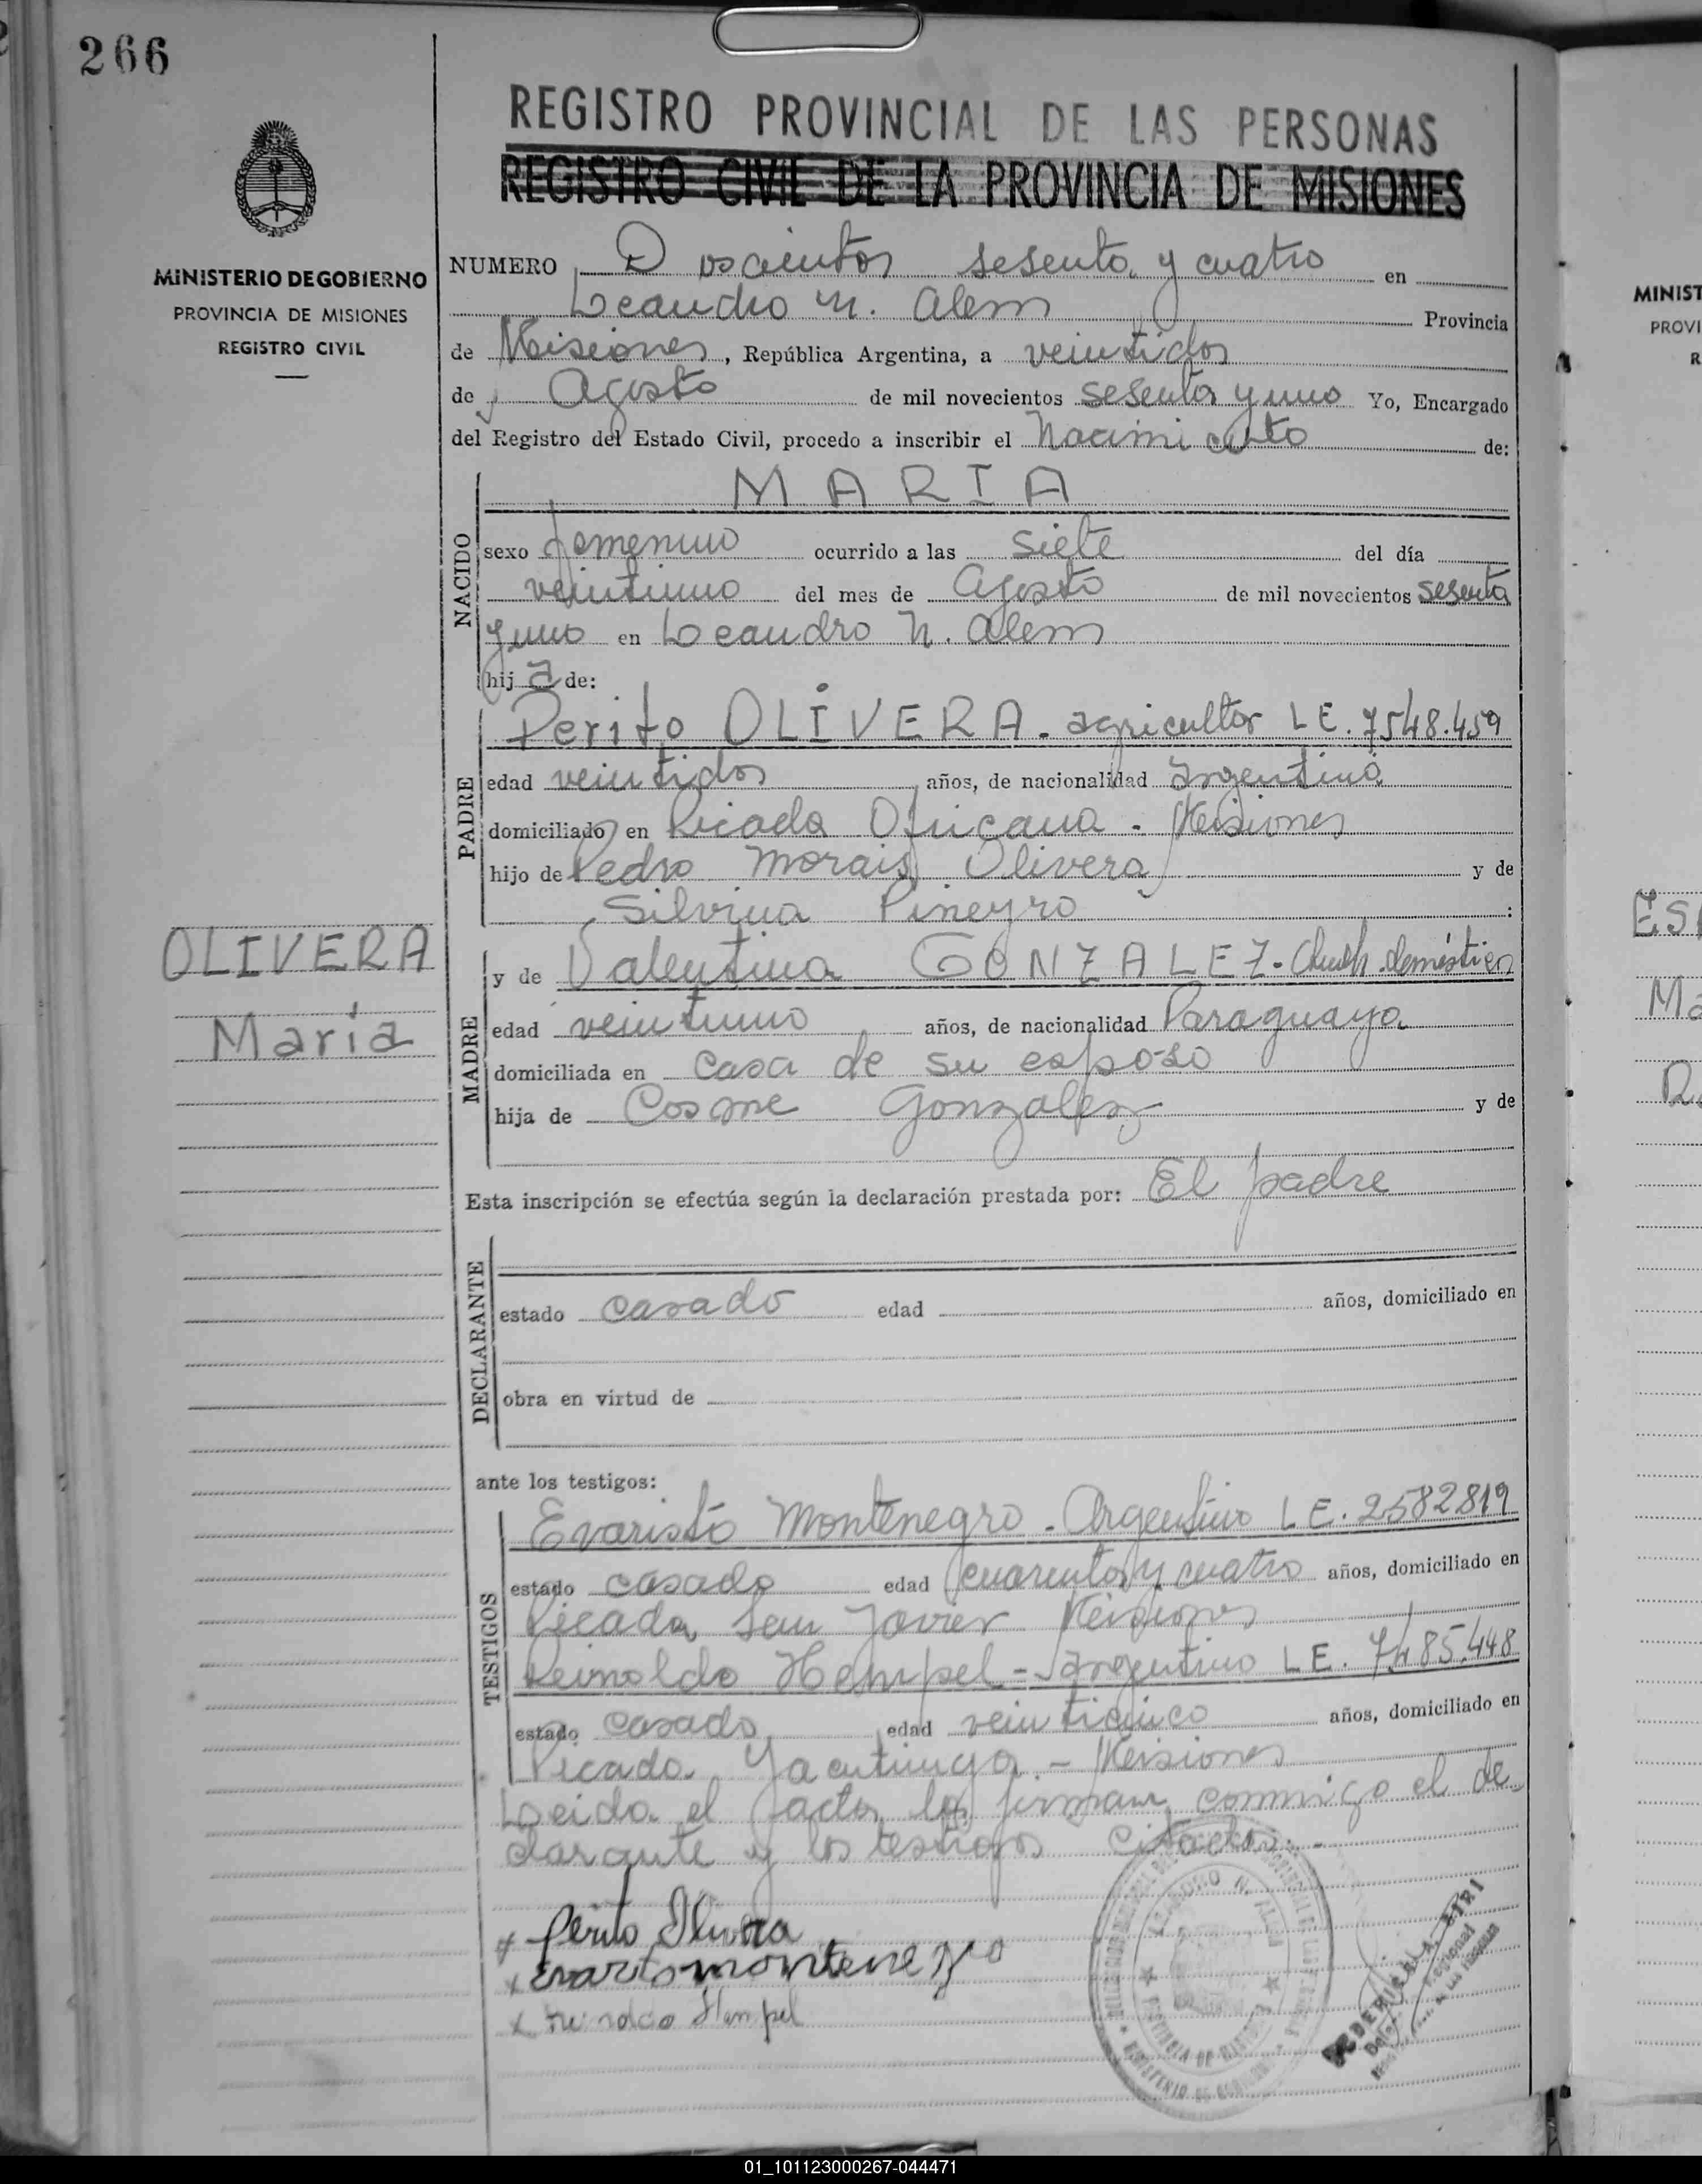 266
REGISTRO PROVINCIAL DE LAS PERSONAS
REGISTRO CIVIL DE LA PROVINCIA DE MISIONES
MINISTERIO DE GOBIERNO
PROVINCIA DE MISIONES
REGISTRO CIVIL
NUMERO Doscientos sesenta y cuatro en
Leandro N. Alem Provincia
de Misiones, República Argentina, a veintidos
de Agosto de mil novecientos sesenta y uno Yo, Encargado
del Registro del Estado Civil, procedo a inscribir el Nacimiento de:
NACIDO
MARIA
sexo femenino ocurrido a las siete del día
veintiuno del mes de Agosto de mil novecientos sesenta
y uno en Leandro N. Alem
hija de:
PADRE
Perito OLIVERA - agricultor L E. 7548.459
edad veintidos años, de nacionalidad Argentina
domiciliado en Picada Ofricana - Misiones
hijo de Pedro Morais Olivera y de
Silvina Pineyro :
OLIVERA
Maria
MADRE
y de Valentina GONZALEZ - domésticos
edad veintiuno años, de nacionalidad Paraguaya
domiciliada en casa de su esposo
hija de Cosme Gonzalez y de
Esta inscripción se efectúa según la declaración prestada por: El padre
DECLARANTE
estado casado edad años, domiciliado en
obra en virtud de
ante los testigos:
TESTIGOS
Evaristo Montenegro - Argentino L E. 2582819
estado casado edad cuarenta y cuatro años, domiciliado en
Picada San Javier Misiones
Reinoldo Hempel - Argentino L E. 7485.448
estado casado edad veinticinco años, domiciliado en
Picada Yacutinga - Misiones
Leida el acta, la firman conmigo el de-
clarante y los testigos citados.-
x Perito Olivera
x Evaristo montenegro
x reinoldo Hempel
MINIST
PROVI
R
ESP
Ma
01_101123000267-044471